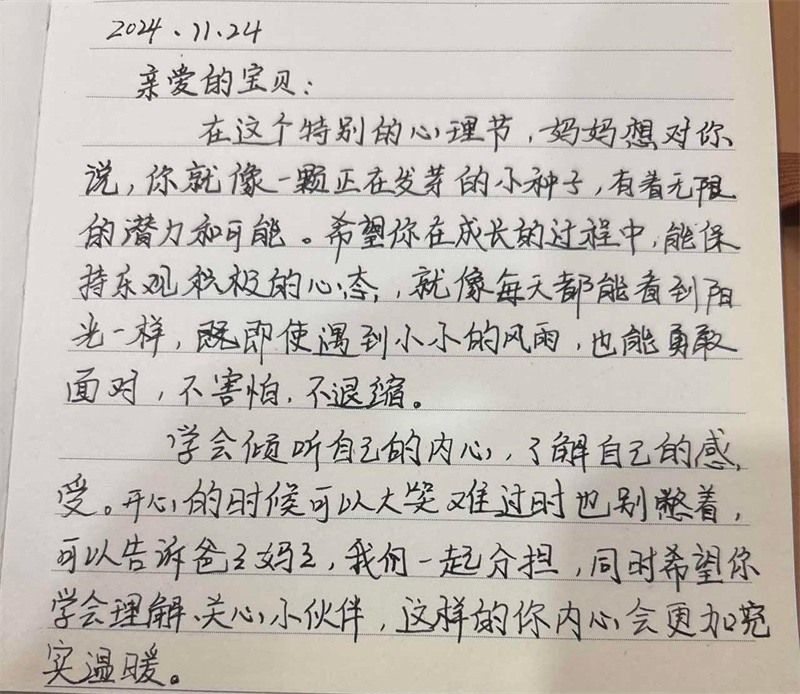 2024.11.24
亲爱的宝贝:
在这个特别的心理节,妈妈想对你
说,你就像一颗正在发芽的小种子,有着无限
的潜力和可能。希望你在成长的过程中,能保
持乐观积极的心态,就像每天都能看到阳
光一样,既即使遇到小小的风雨,也能勇敢
面对,不害怕,不退缩。
学会倾听自己的内心,了解自己的感
受。开心的时候可以大笑难过时也别憋着,
可以告诉爸々妈々,我们一起分担,同时希望你
学会理解、关心小伙伴,这样的你内心会更加充
实温暖。